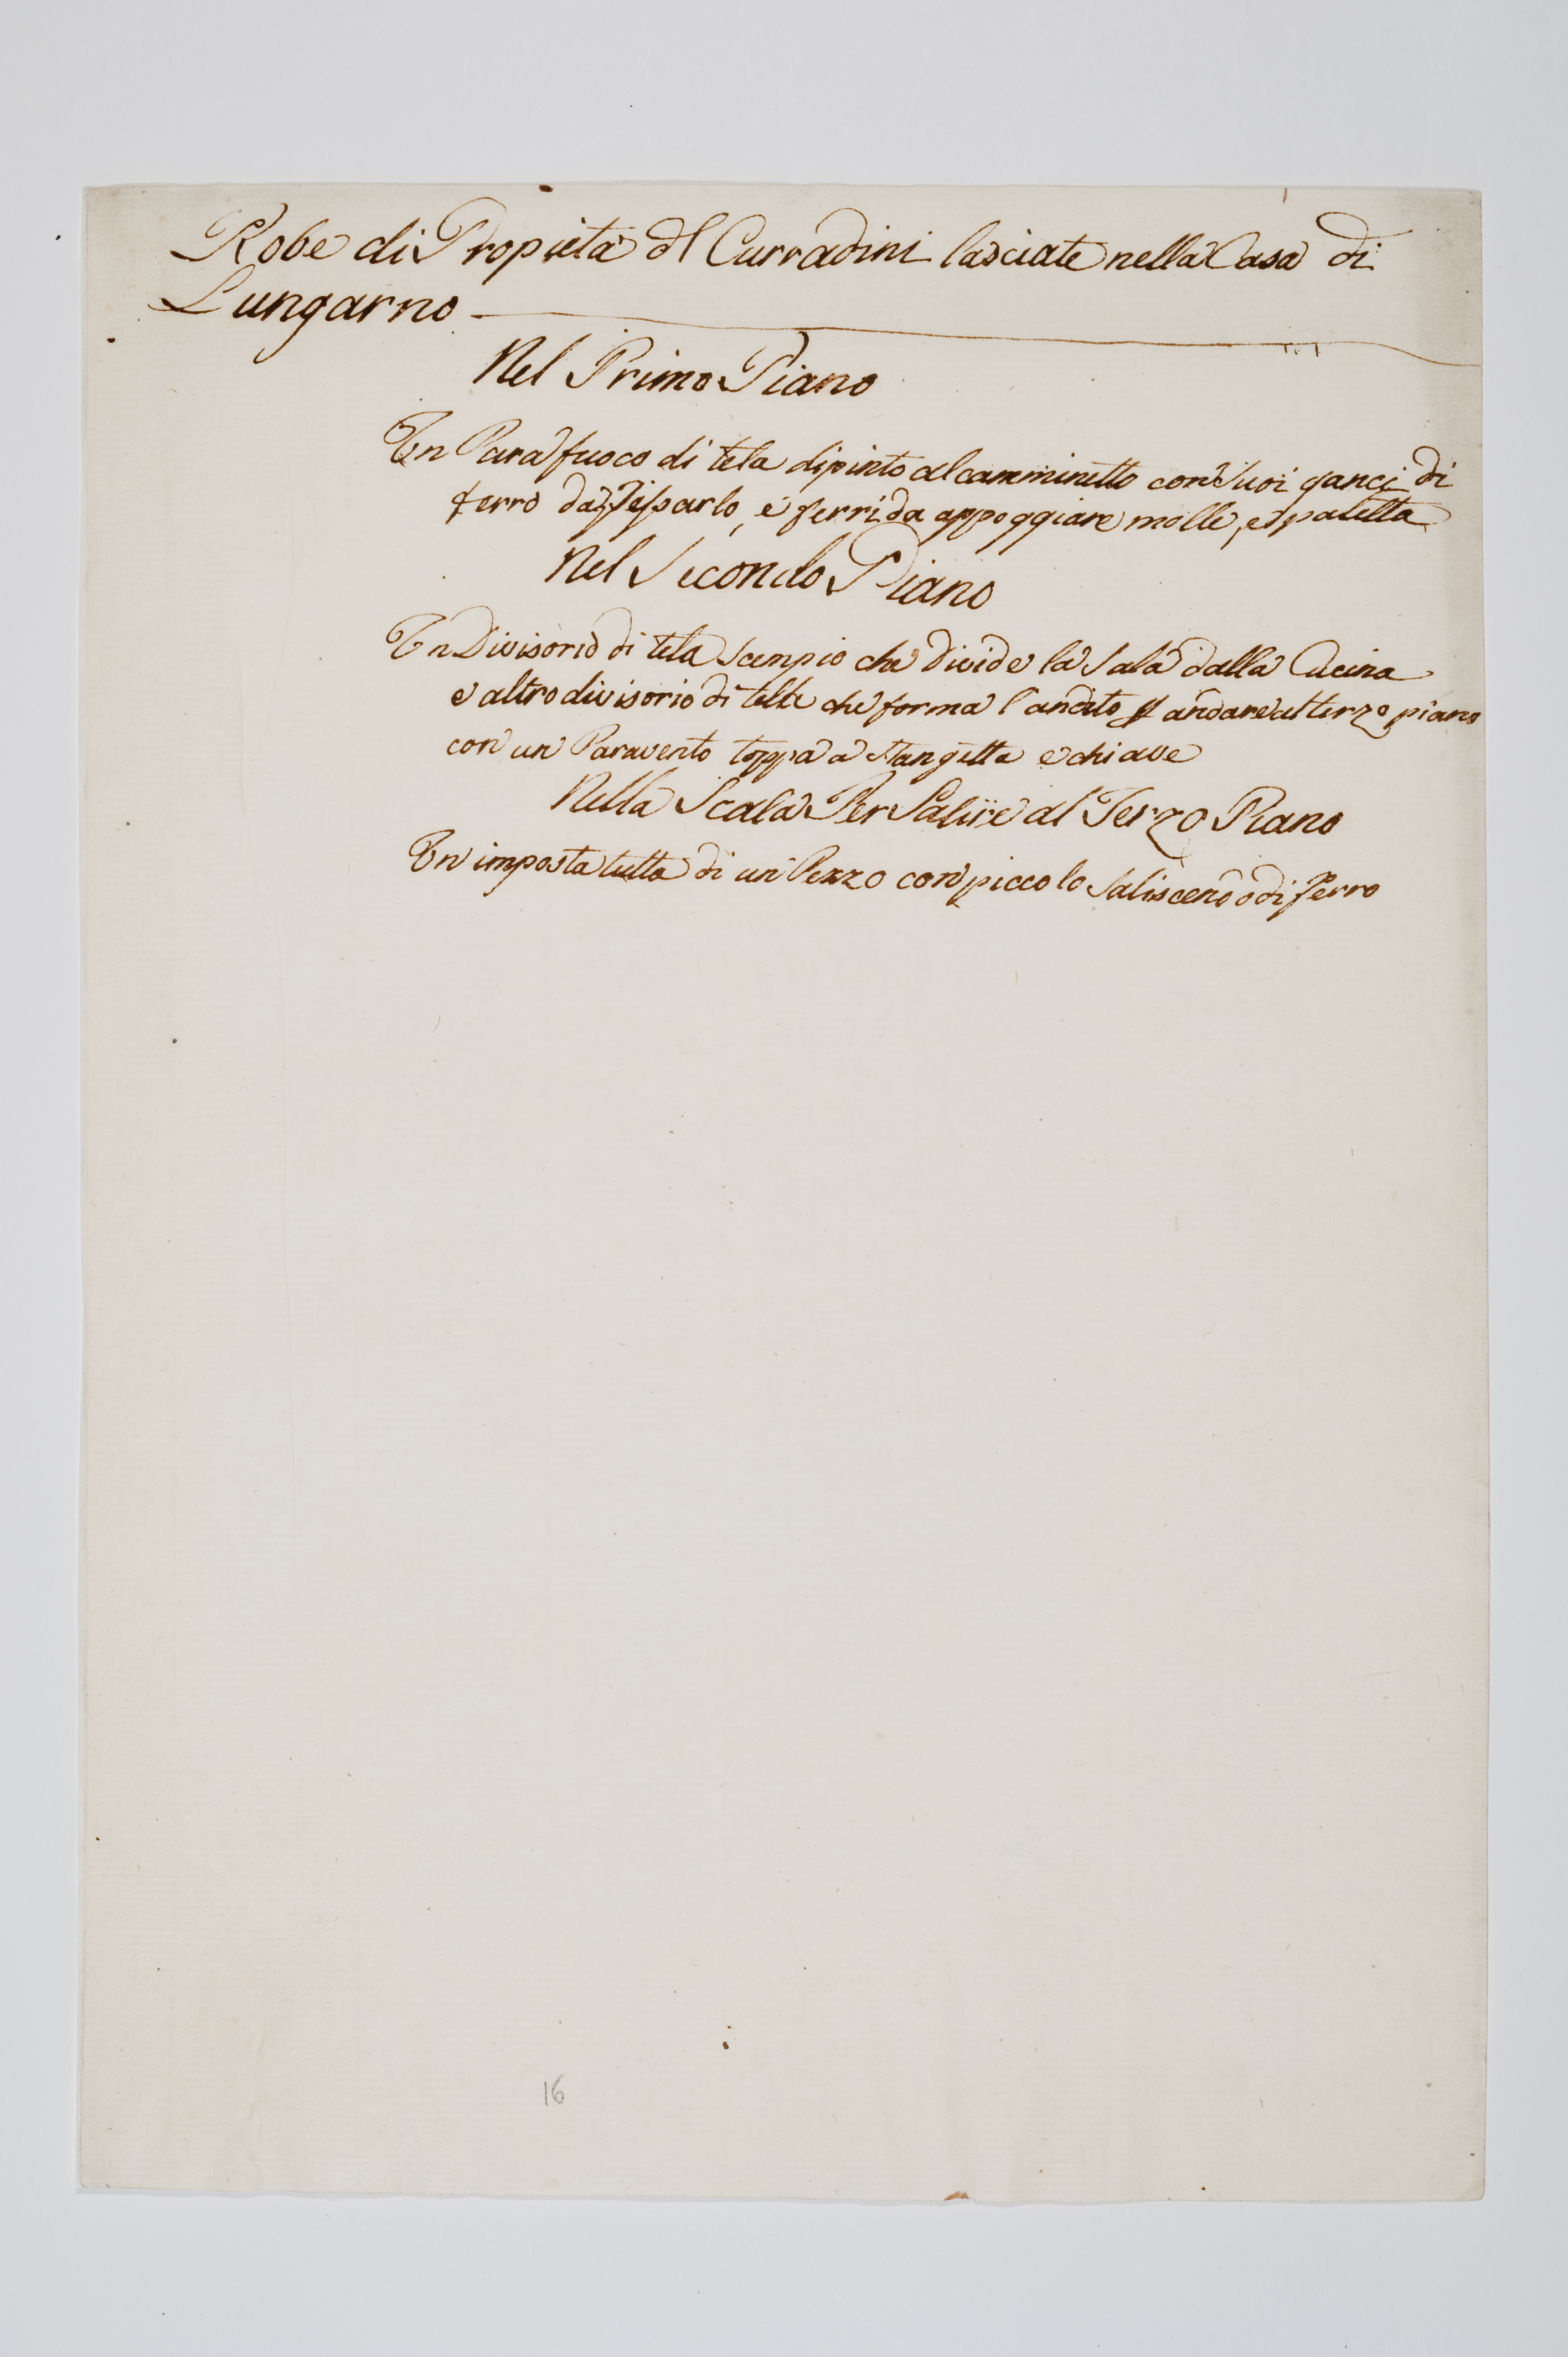 Robe di Propieta dl Curradini lasciate nella Casa di
Lungarno
Nel Primo Piano
Un Para fuoco di tela dipinto al camminetto con suoi ganci di
ferro da fissarlo, e ferri da appoggiare molle, e paletta
Nel Secondo Piano
Un Divisorio di tela scempio che divide la sala dalla Cucina
e altro divisorio di tella che forma l'andito p andare al terzo piano
con un Paravento toppa a stangetta e chiave
Nella Scala Per Salire al Terzo Piano
Un imposta tutta di un Pezzo con piccolo saliscendo di ferro
16